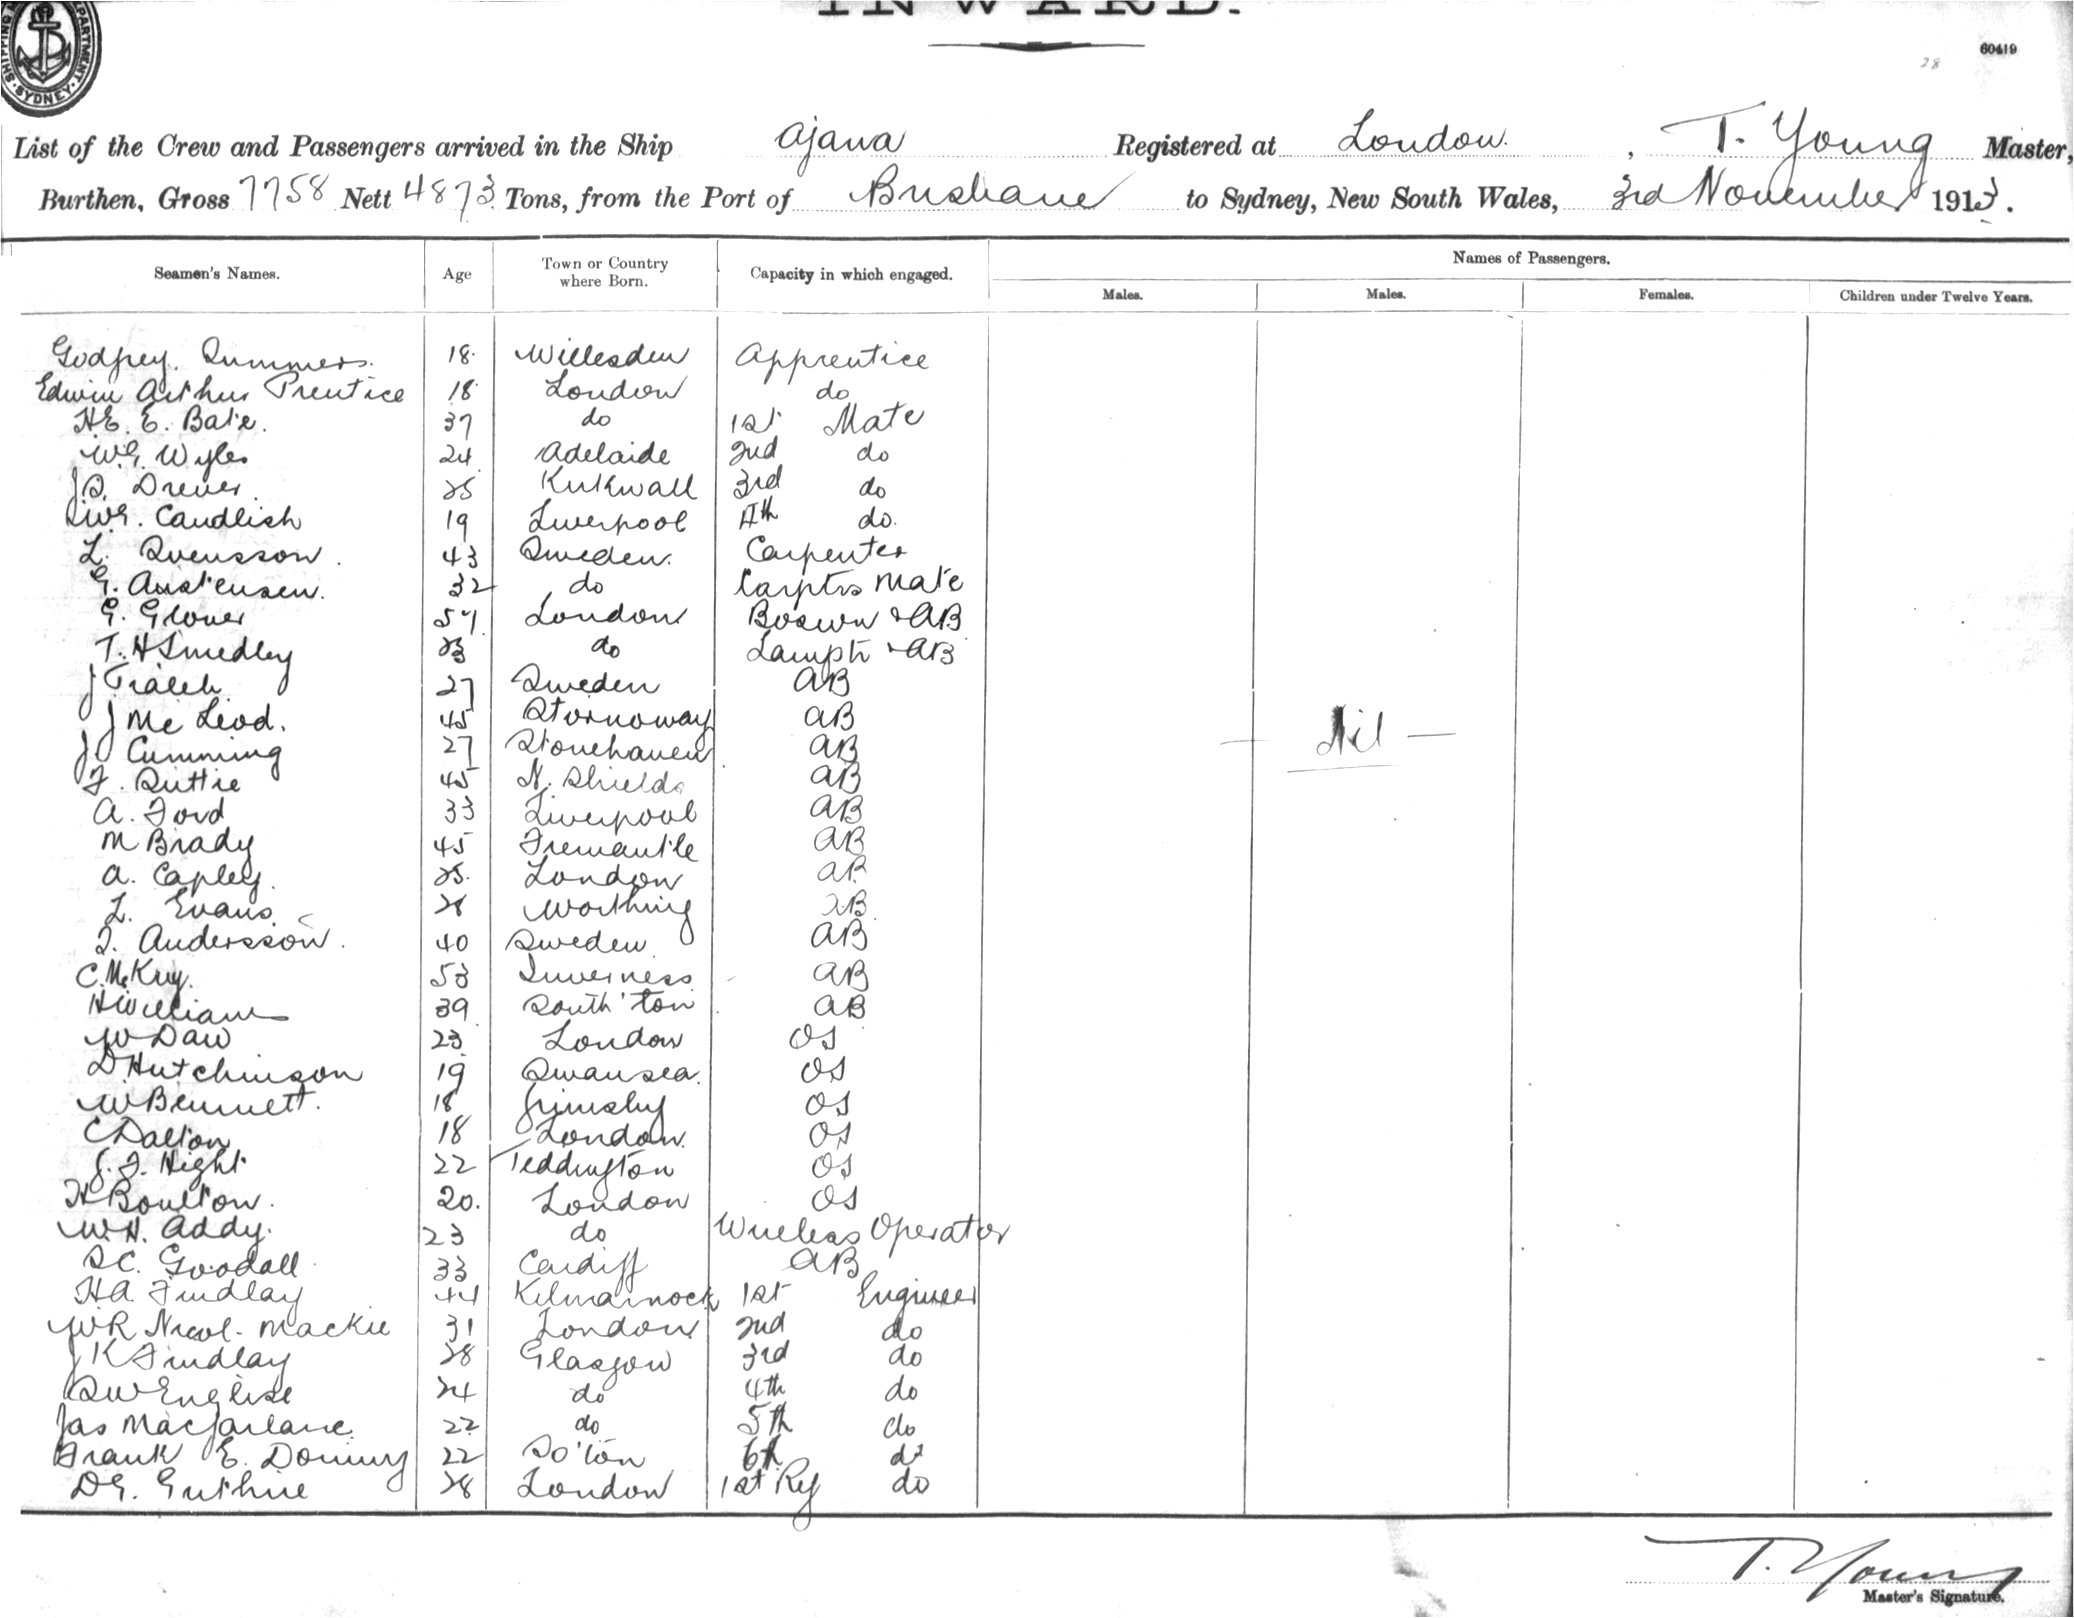 INWARD.
SYDNEY
60419
28
List of the Crew and Passengers arrived in the Ship Ajana Registered at London. , T. Young Master,
Burthen, Gross 7758 Nett 4873 Tons, from the Port of Brisbane to Sydney, New South Wales, 3rd November 1913.
Seamen's Names. Age Town or Country where Born. Capacity in which engaged. Names of Passengers.
Males. Males. Females. Children under Twelve Years.
Godfrey Summers. 18 Willesden Apprentice
Edwin Arthur Prentice 18 London do
H.E. E. Bate. 37 do 1st Mate
W.G. Wyles 24 Adelaide 2nd do
J.D. Drever 25 Kirkwall 3rd do
Candlish 19 Liverpool 4th do.
L. Svensson. 43 Sweden. Carpenter
G. Austensen. 32 do Carptrs Mate
G. Glover London Bosewn & AB
T. H Smedley do Lamptr & AB
J 27 Sweden AB
J Mc Leod. 45 Stornoway AB
J Cumming 27 Stonehaven AB
F. Suttie 45 N. Shields AB
A. Ford 33 Liverpool AB
M Brady 45 Fremantle AB
A. Capley. 25. London AB
L. Evans 28 Worthing AB
Andersson. 40 Sweden AB
C. McKay. 53 Inverness AB
H Williams 39 South'ton AB
W Daw 23 London OS
D Hutchinson 19 Swansea. OS
W Bennett. 18 Grimsby OS
C Dalton 18 London. OS
J. F. Hight 22 Teddington OS
H Boulton. 20. London OS
W. H. Addy. 23 do Wireless Operator
S C. Goodall 33 Cardiff AB
H A. Findlay 44 Kilmarnock 1st Engineer
W R Nicol-Mackie 31 London 2nd do
J K Findlay 28 Glasgow 3rd do
S W English 24 do 4th do
Jas Macfarlane 22 do 5th do
Frank E. Dominy 22 So'ton 6th do
D G. Guthrie 28 London 1st Rfg do
— Nil —
T. Young
Master's Signature.